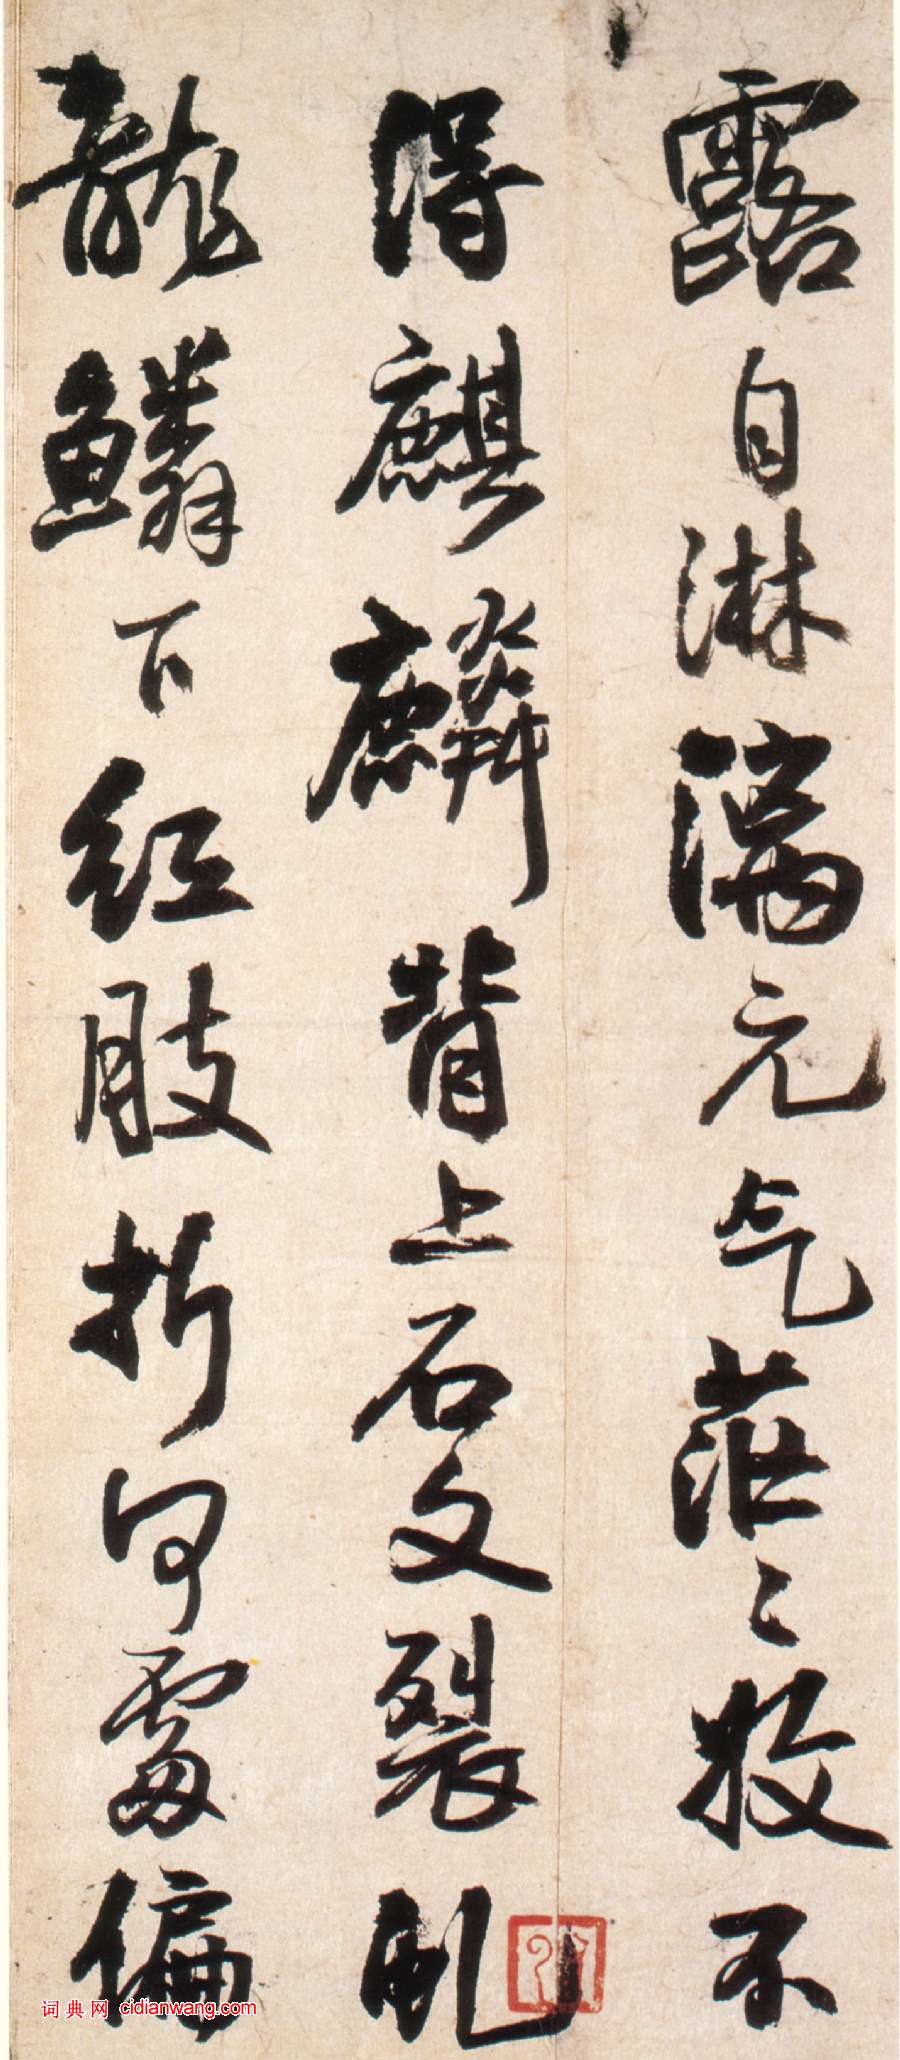 露自淋漓元气茫〻收不
得麒麟背上石文裂虬
龍鱗下紅肢折何處偏
词典网 cidianwang.com